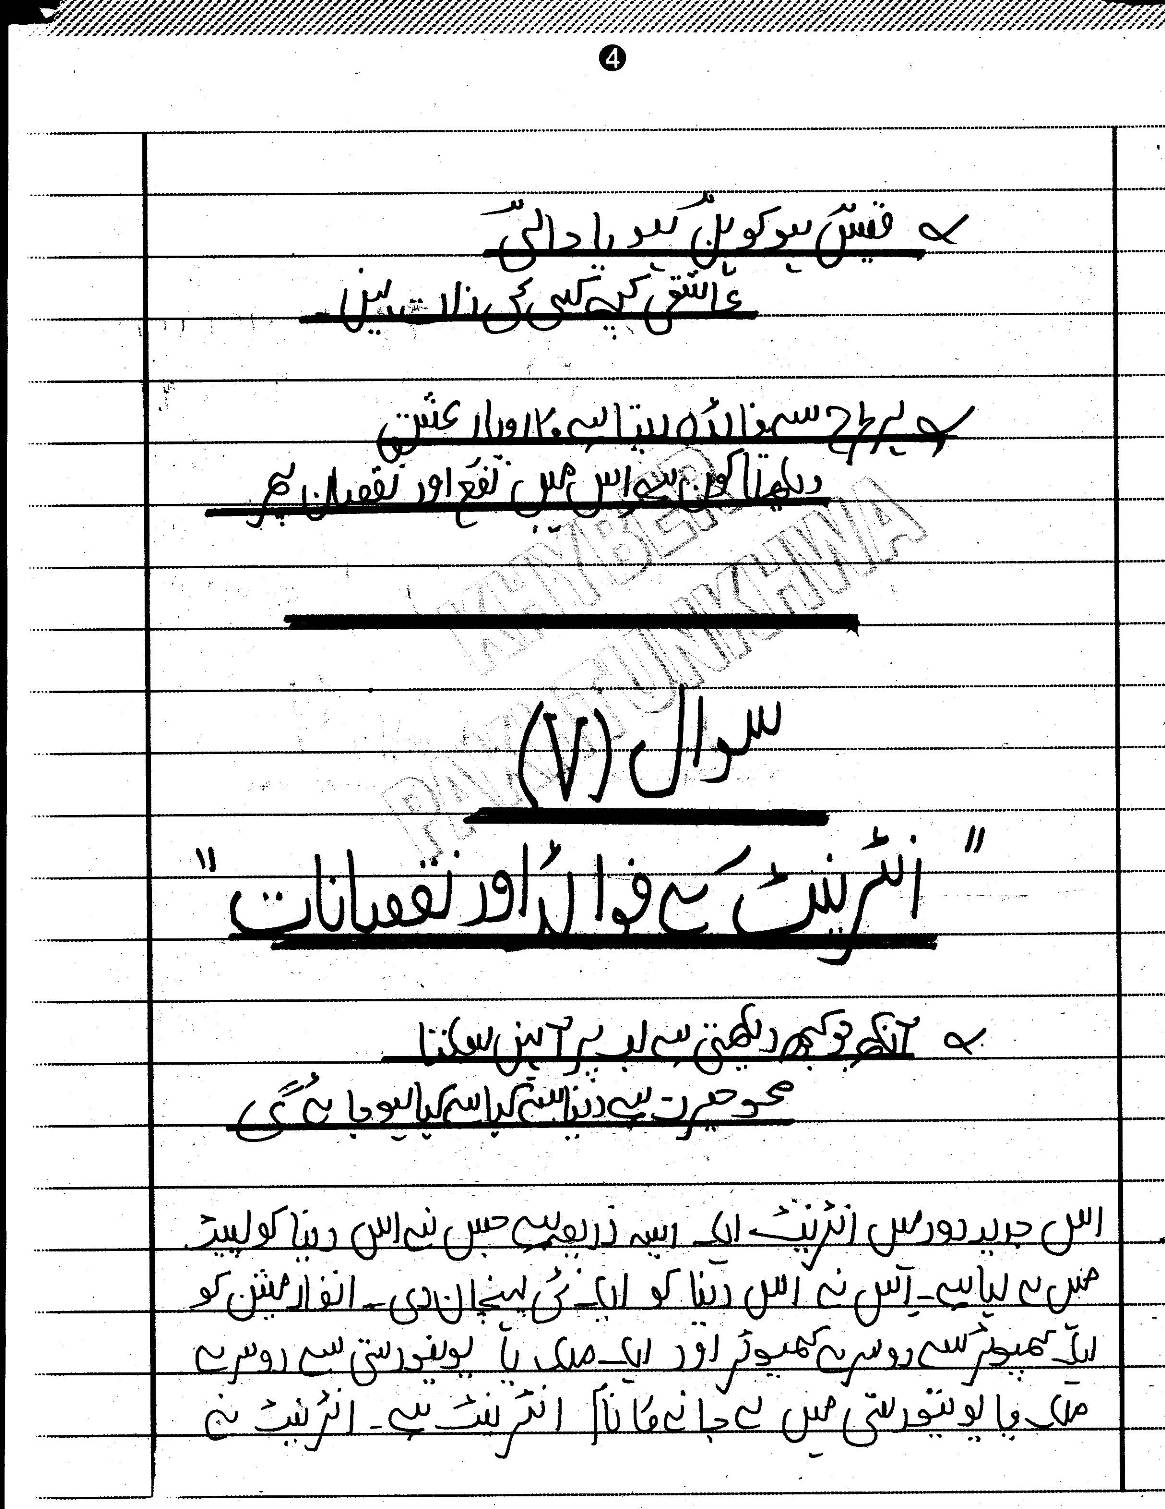 4
قیس ہو کوہکن ہو یا حالی
عاشقی کچھ کسی کی ذات نہیں
ہر طرح سے فائدہ دیتا ہے کاروبار عشق
دیکھتا کون ہے اس میں نفع اور نقصان پھر
KHYBER
PAKHTUNKHWA
سوال (7)
"انٹرنیٹ کے فوائد اور نقصانات"
آنکھ جو کچھ دیکھتی ہے لب پر آ نہیں سکتا
محو حیرت ہے دنیا سے کیا سے کیا ہو جائے گی
اس جدید دور میں انٹرنیٹ ایک ایسا ذریعہ ہے جس نے اس دنیا کو لپیٹ
میں لے لیا ہے۔ اس نے اس دنیا کو ایک نئی پہچان دی۔ انفارمیشن کو
ایک کمپیوٹر سے دوسرے کمپیوٹر اور ایک ملک یا یونیورسٹی سے دوسرے
ملک یا یونیورسٹی میں لے جانے کا نام انٹرنیٹ ہے۔ انٹرنیٹ نے